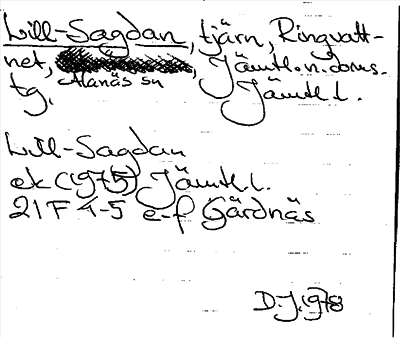 Lill-Sagdan, tjärn, Ringvatt-
net, Alanäs sn, Jämtl. n. doms.
tg, Jämtl l.
Lill-Sagdan
ek (1975) Jämtl l.
21F 4-5 e-f Gärdnäs
D.J. 1978